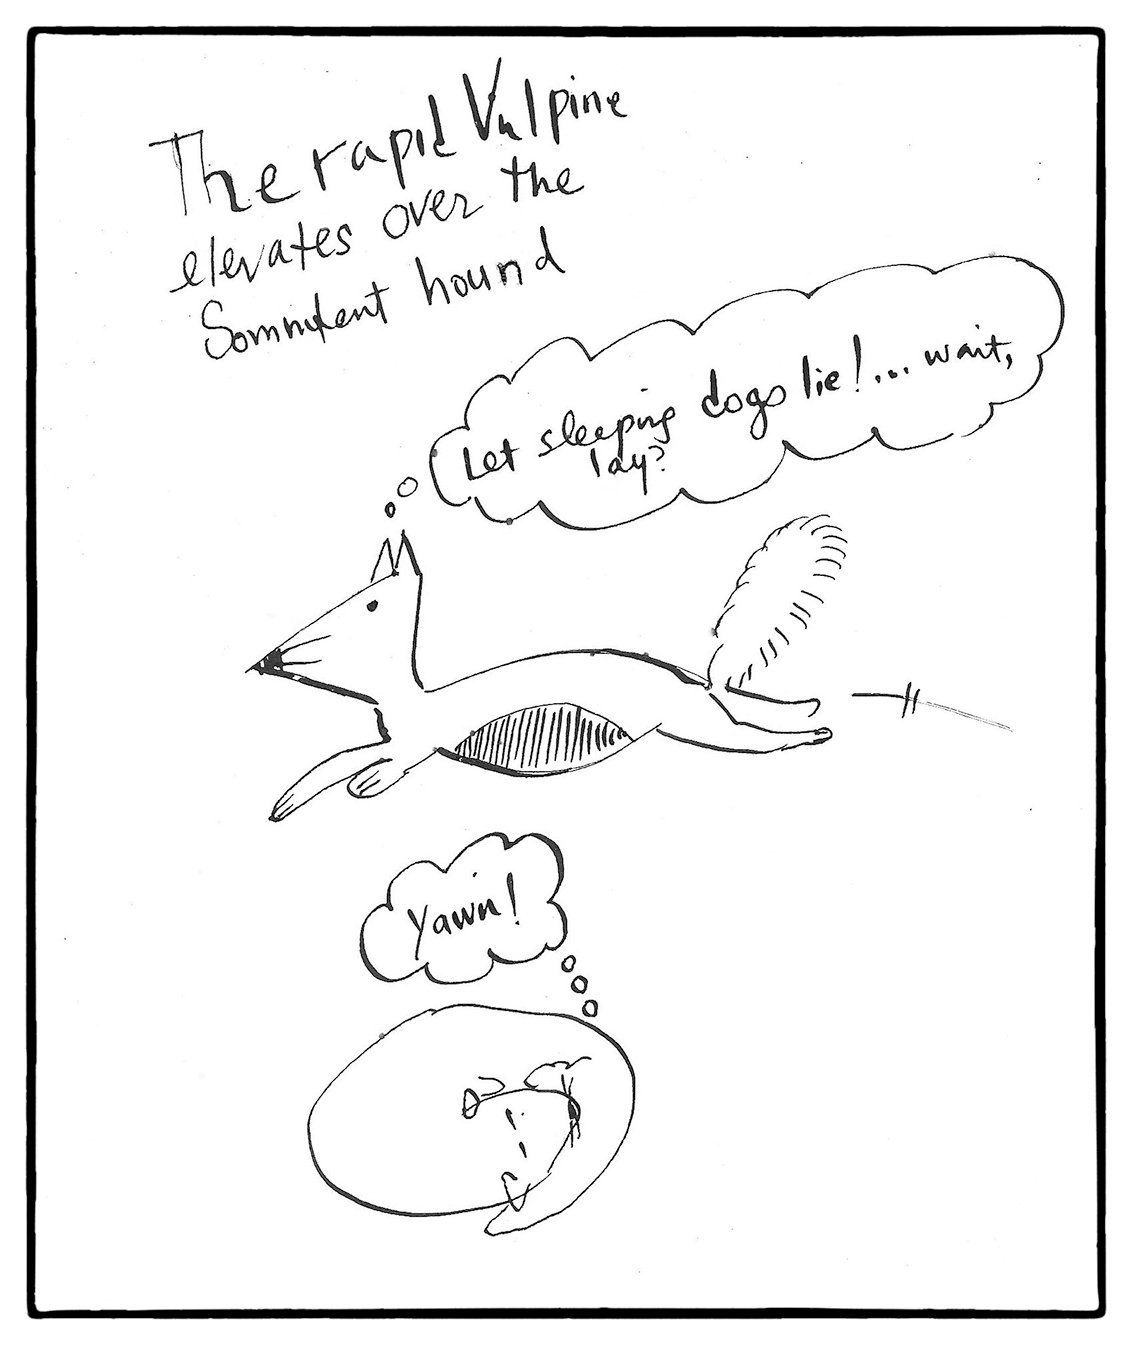 The rapid Vulpine
elevates over the
Somnulent hound
Let sleeping dogs lie!... wait,
lay?
Yawn!